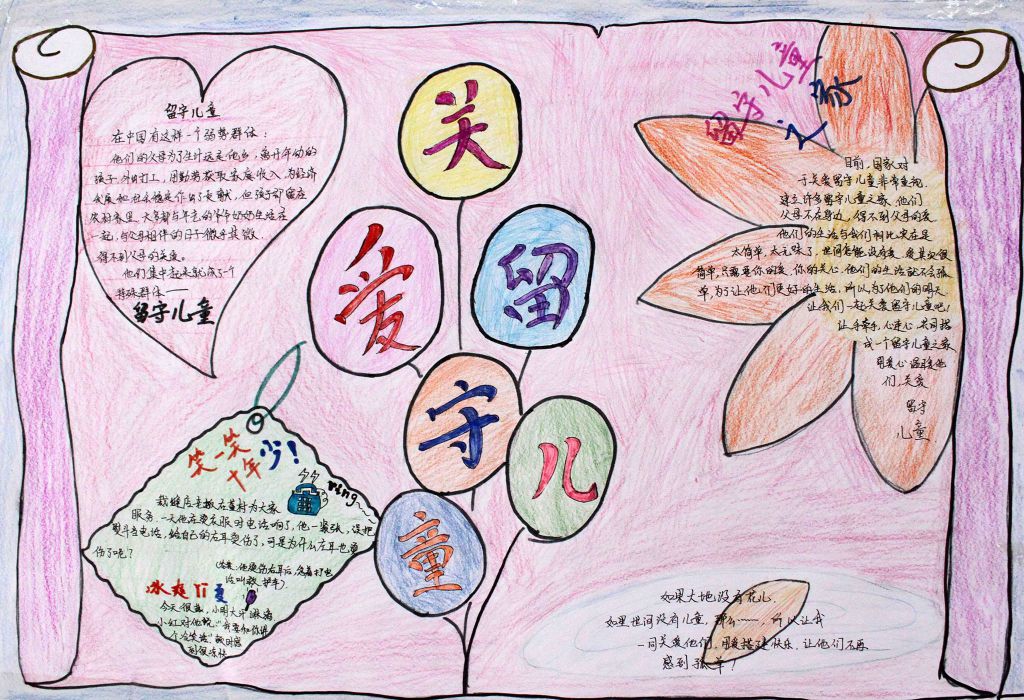 留守儿童
在中国有这样一个弱势群体：
他们的父母为了生计远走他乡，离开年幼的
孩子，外出打工，用勤劳获取家庭收入，为经济
发展和社会稳定作出了贡献，但孩子却留在
农村家里，大多都与年老的爷爷奶奶生活在
一起，与父母相伴的日子微乎其微.
得不到父母的关爱。
他们集中起来就成了一个
特殊群体——
留守儿童
关
爱
留
守
儿
童
留守儿童
之家
目前，国家对
于关爱留守儿童非常重视.
建立许多留守儿童之家. 他们
父母不在身边，得不到父母的爱
他们的生活与我们相比实在是
太简单，太无味了，世间怎能没有爱，爱其实很
简单，只需要你的爱，你的关心，他们的生活就不会孤
单，为了让他们更好的生活，所以为了他们的明天
让我们一起关爱留守儿童吧！
让手牵手，心连心，共同搭
成一个留守儿童之家
用爱心温暖他
们，关爱
留守
儿童
笑一笑
十年少！
ring~~~
裁缝店老板在茧村为大家
服务.一天他在熨衣服时电话响了，他一紧张，误把
熨斗当电话，给自己的右耳烫伤了，可是为什么左耳也受
伤了呢？
他烫伤右耳后，急着打电
话叫救护车）
冰爽 Ti 夏
今天很热，小明大汗淋漓
小红对他说：“我要和你讲
个冷笑话”
如果大地没有花儿.
如果世间没有儿童，那么……，所以让我
一同关爱他们，用爱搭建快乐，让他们不再
感到孤单！